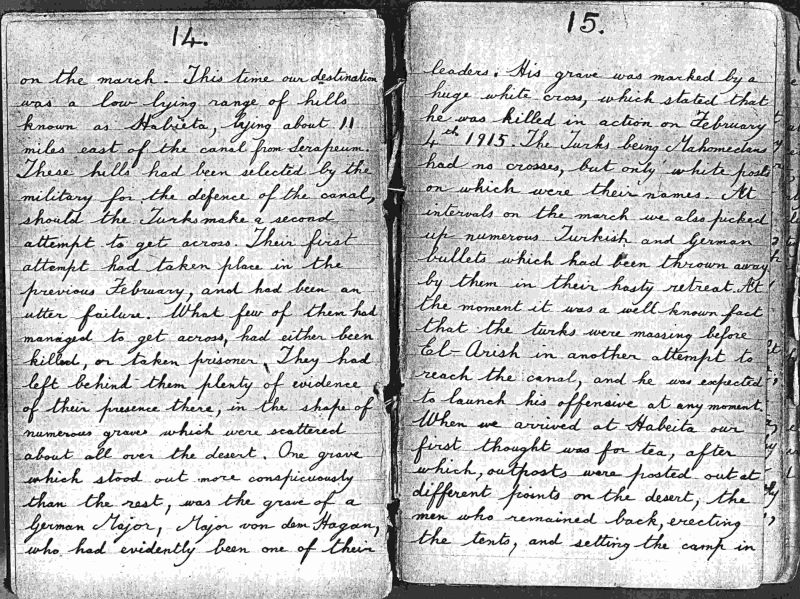 14.
on the march. This time our destination
was a low lying range of hills
known as Habieta, lying about 11
miles east of the canal from Serapeum.
These hills had been selected by the
military for the defence of the canal,
should the Turks make a second
attempt to get across. Their first
attempt had taken place in the
previous February, and had been an
utter failure. What few of them had
managed to get across, had either been
killed, or taken prisoner. They had
left behind them plenty of evidence
of their presence there, in the shape of
numerous graves which were scattered
about all over the desert. One grave
which stood out more conspicuously
than the rest, was the grave of a
German Major, Major von dem Hagan,
who had evidently been one of their
15.
leaders. His grave was marked by a
huge white cross, which stated that
he was killed in action on February
4th 1915. The Turks being Mahomedans
had no crosses, but only white posts
on which were their names. At
intervals on the march we also picked
up numerous Turkish and German
bullets which had been thrown away
by them in their hasty retreat. At
the moment it was a well known fact
that the turks were massing before
El-Arish in another attempt to
reach the canal, and he was expected
to launch his offensive at any moment.
When we arrived at Habeita our
first thought was for tea, after
which, outposts were posted out at
different points on the desert, the
men who remained back, erecting
the tents, and setting the camp in